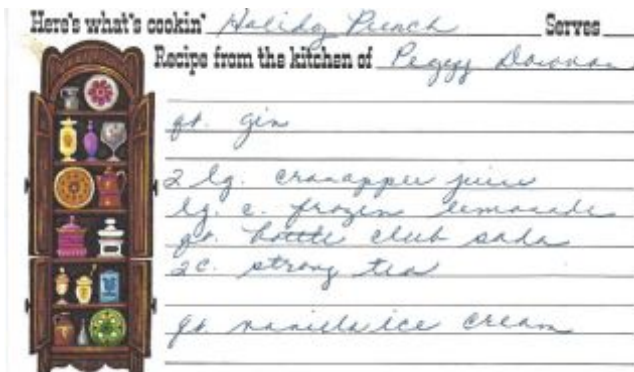 Here's what's cookin' Holiday Punch Serves
Recipe from the kitchen of Peggy
qt. gin
2 lg. cranapple juice
lg. c. frozen lemonade
qt. bottle club soda
2c. strong tea
qt vanilla ice cream